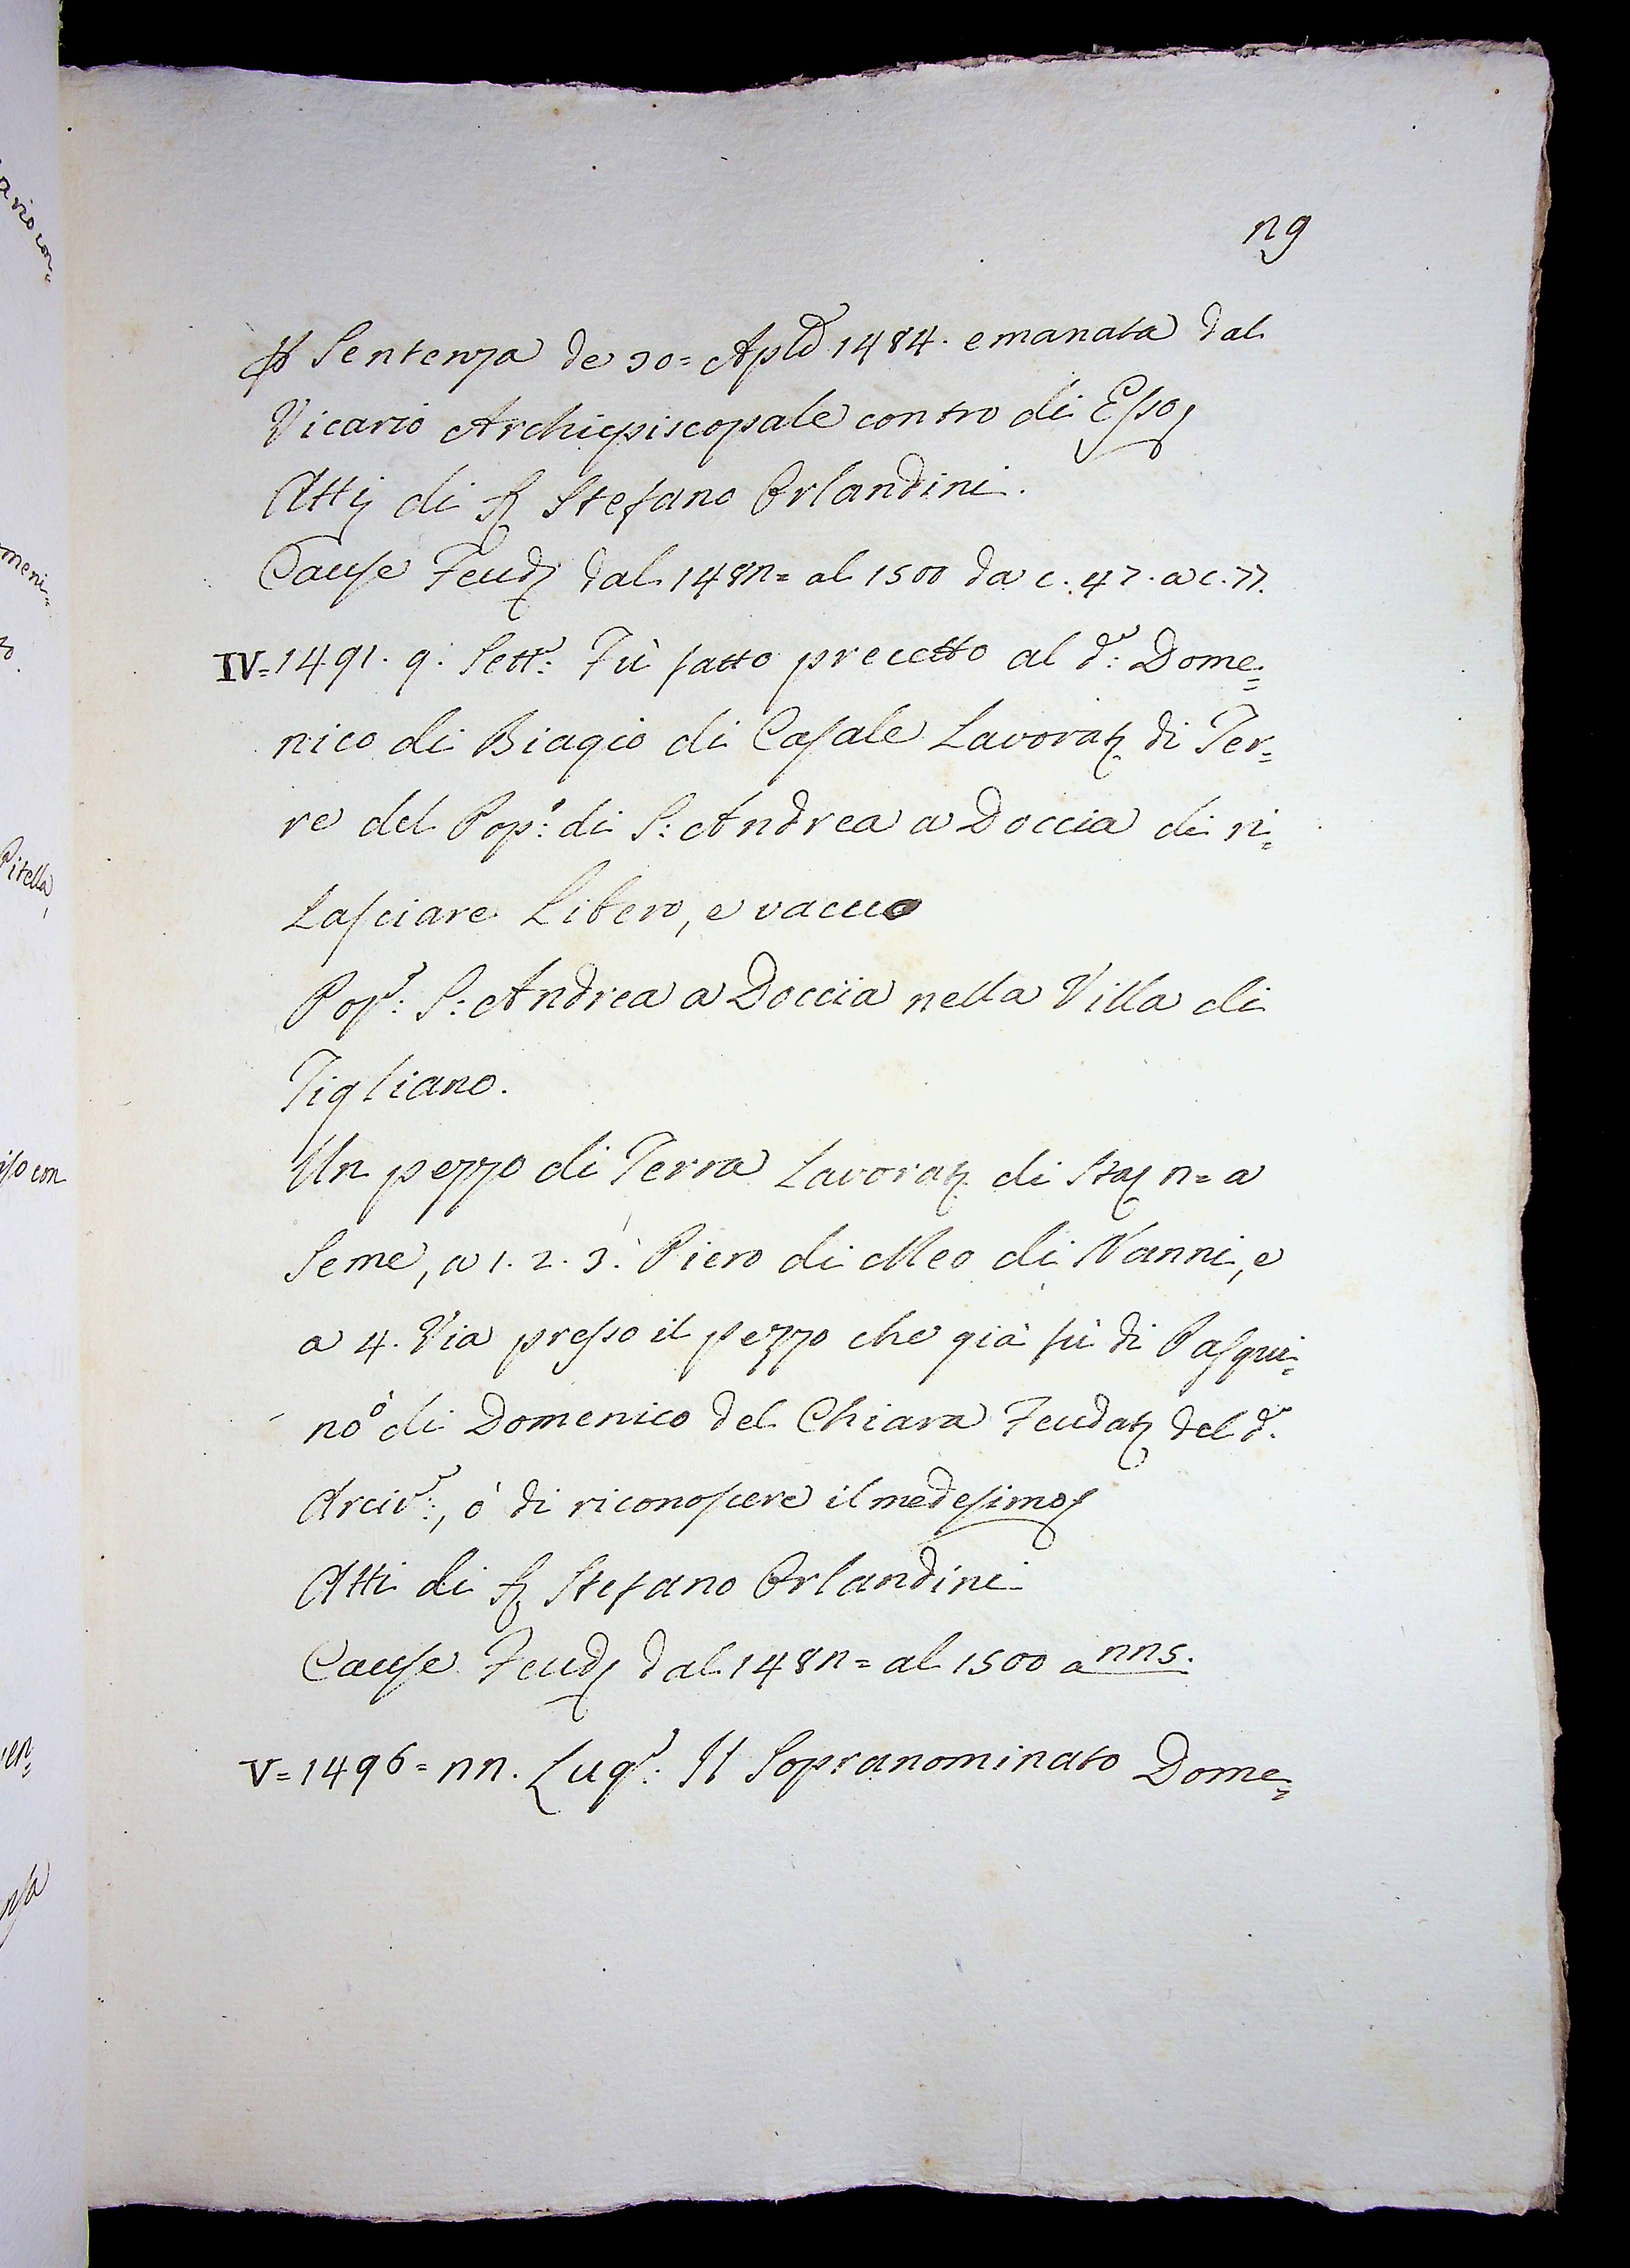 n9
Sentenza de 30= Aple 1484. emanata dal
Vicario Archiepiscopale contro di Esso
Atti di Stefano Orlandini.
Cause Feud dal 148n= al 1500 da c. 47. a c. 77.
IV=1491. 9. Sett.e: Fù fatto precetto al d.o: Dome=
nico di Biagio di Casale Lavorat di Ter=
re del Pop.o: di S: Andrea a Doccia di ri=
lasciare Libero, e vacuo
Pop.o: S: Andrea a Doccia nella Villa di
Tigliano.
Un pezzo di Terra Lavorat di Staj n= a
Seme, a 1. 2. 3. Piero di Meo di Nanni, e
a 4. Via presso il pezzo che già fù di Pasqui=
no di Domenico del Chiara Feudat del d.o
Arciv.o:, ò di riconoscere il medesimo
Atti di Stefano Orlandini
Cause Feud dal 148n= al 1500 a nn5.
V=1496=nn. Lug.o: Il Sopranominato Dome=
meni=
Pitella,